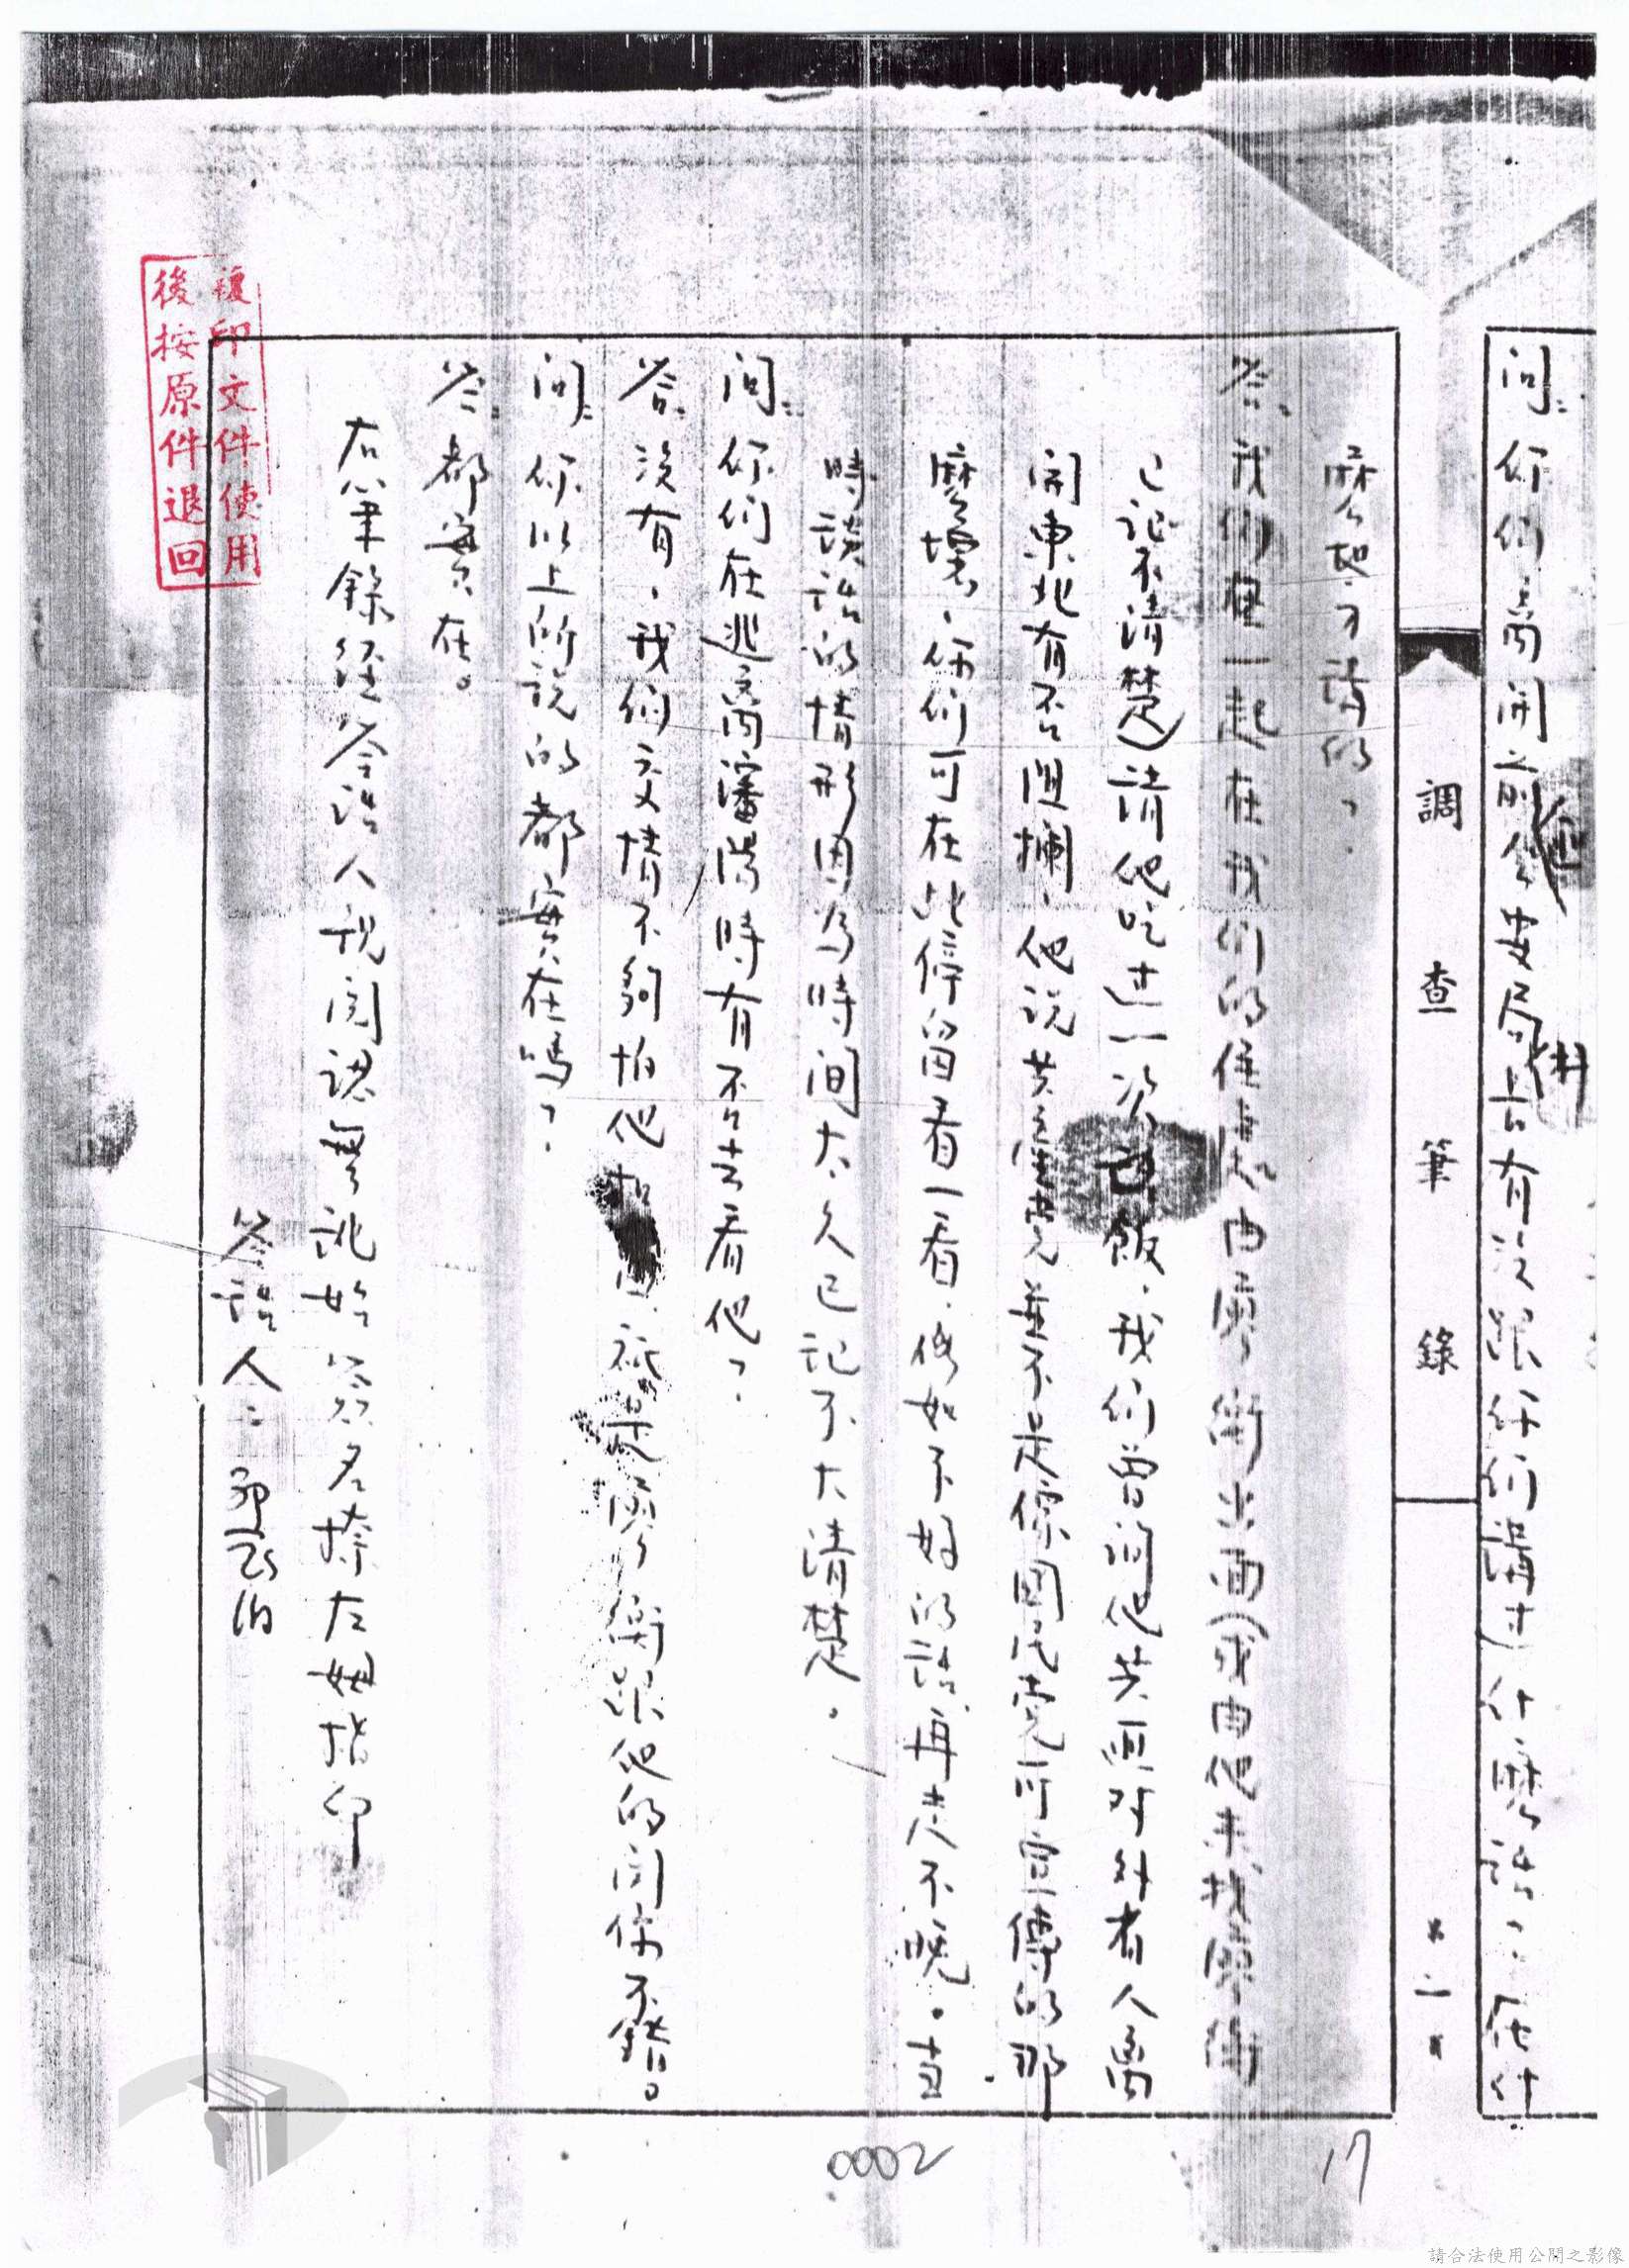 問：你們離開前公安局長有沒跟你們講過什麼話？在什
調查筆錄
第二頁
麼地方講的？
答：我們一起在我們的住處由廖衡出面(或由他來找廖衡
已記不清楚)請他吃過一次飯，我們曾問他共匪對外省人離
開東北有否阻攔，他說共產黨並不是像國民黨所宣傳的那
麼壞，你們可在此停留看一看，倘如不好的話再走不晚。當
時談話的情形因為時間太久已記不大清楚。
問：你們在逃離瀋陽時有否去看他？
答：沒有，我們交情不夠怕他 廖衡與他的關係不錯。
問：你以上所說的都實在嗎？
答：都實在。
右筆錄經答話人親閱認無訛始簽名捺左姆指印
答話人：
複印文件使用
後按原件退回
0002
17
請合法使用公開之影像